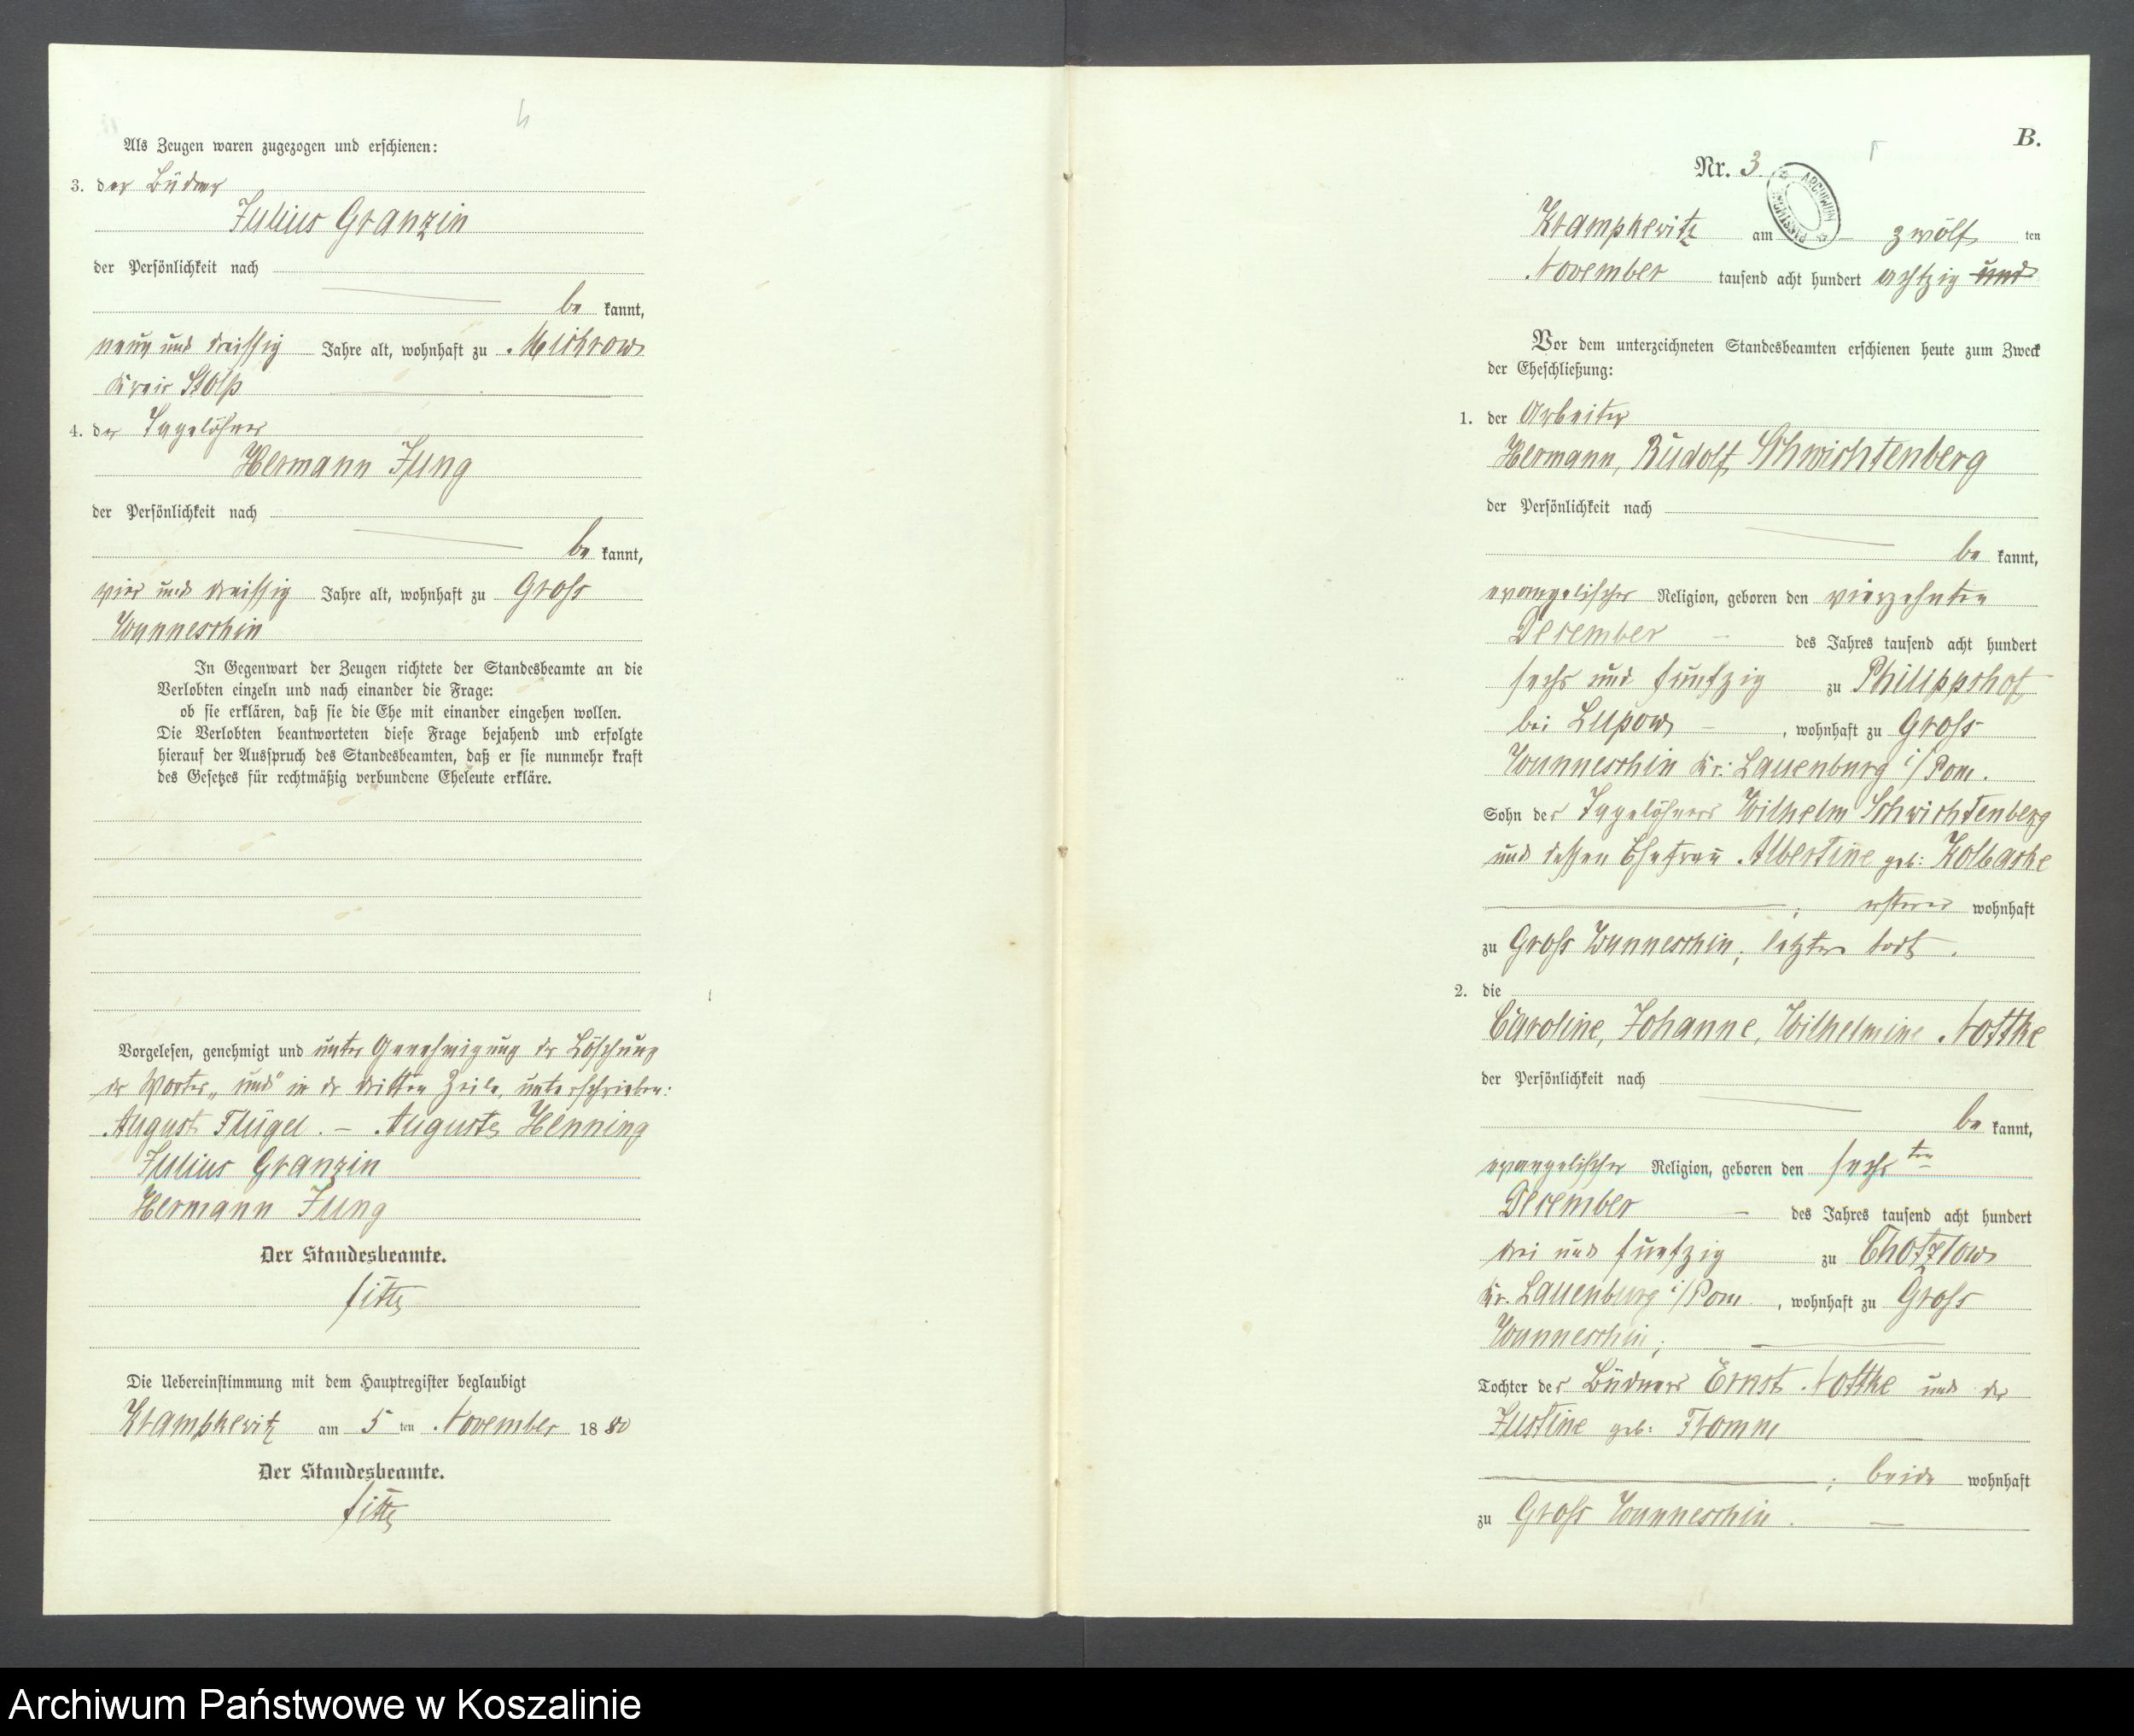 Als Zeugen waren zugezogen und erschienen:
3. der Büdner
Julius Granzin
der Persönlichkeit nach
be kannt,
neun und dreissig Jahre alt, wohnhaft zu Mickrow
Kreis Stolp
4. der Tagelöhner
Hermann Jung
der Persönlichkeit nach
be kannt,
vier und dreissig Jahre alt, wohnhaft zu Gross
Wunneschin
In Gegenwart der Zeugen richtete der Standesbeamte an die
Verlobten einzeln und nach einander die Frage:
ob sie erklären, daß sie die Ehe mit einander eingehen wollen.
Die Verlobten beantworteten diese Frage bejahend und erfolgte
hierauf der Ausspruch des Standesbeamten, daß er sie nunmehr kraft
des Gesetzes für rechtmäßig verbundene Eheleute erkläre.
Vorgelesen, genehmigt und unter Genehmigung der Löschung
des Wortes „und" in der dritten Zeile, unterschrieben:
August Flügel. – Auguste Henning
Julius Granzin
Hermann Jung
Der Standesbeamte.
Die Uebereinstimmung mit dem Hauptregister beglaubigt
Krampkewitz am 5 ten November 1880
Der Standesbeamte.
B.
Nr. 3.
ARCHIWUM PAŃSTWOWE
Krampkewitz am zwölf ten
November tausend acht hundert achtzig und
Vor dem unterzeichneten Standesbeamten erschienen heute zum Zweck
der Eheschließung:
1. der Arbeiter
Hermann, Rudolf, Schwichtenberg
der Persönlichkeit nach
be kannt,
evangelischer Religion, geboren den vierzehnten
December des Jahres tausend acht hundert
sechs und funfzig zu Philippshof
bei Lupow, wohnhaft zu Gross
Wunneschin Kr: Lauenburg i/Pom.
Sohn des Tagelöhners Wilhelm Schwichtenberg
und dessen Ehefrau Albertine geb: Kolbaske
; ersterer wohnhaft
zu Gross Wunneschin, letztere todt.
2. die
Caroline, Johanne, Wilhelmine Nottke
der Persönlichkeit nach
be kannt,
evangelischer Religion, geboren den sechs ten
December des Jahres tausend acht hundert
drei und funfzig zu Chotzlow
Kr. Lauenburg i/Pom., wohnhaft zu Gross
Wunneschin;
Tochter des Büdners Ernst Nottke und der
Justine geb: Fromm
; beide wohnhaft
zu Gross Wunneschin.
Archiwum Państwowe w Koszalinie